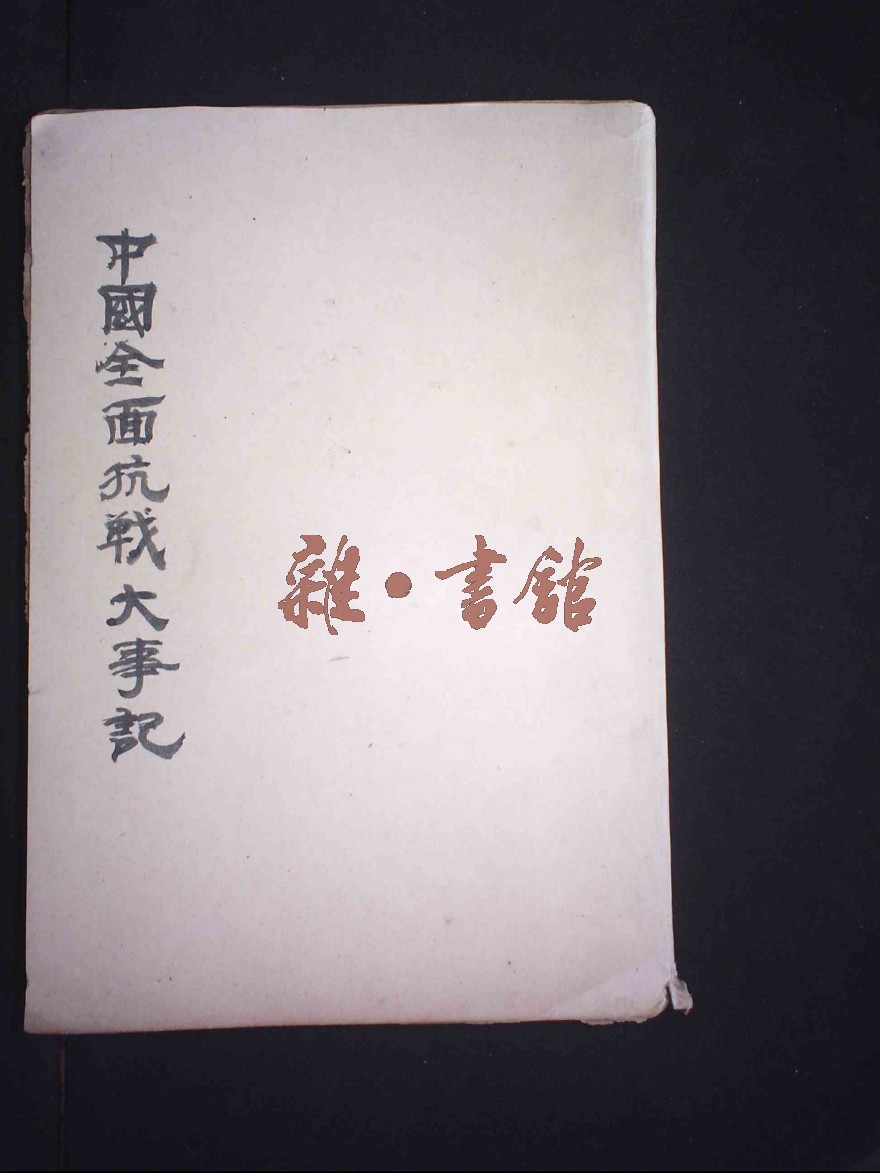 中國全面抗戰大事記
雜·書館